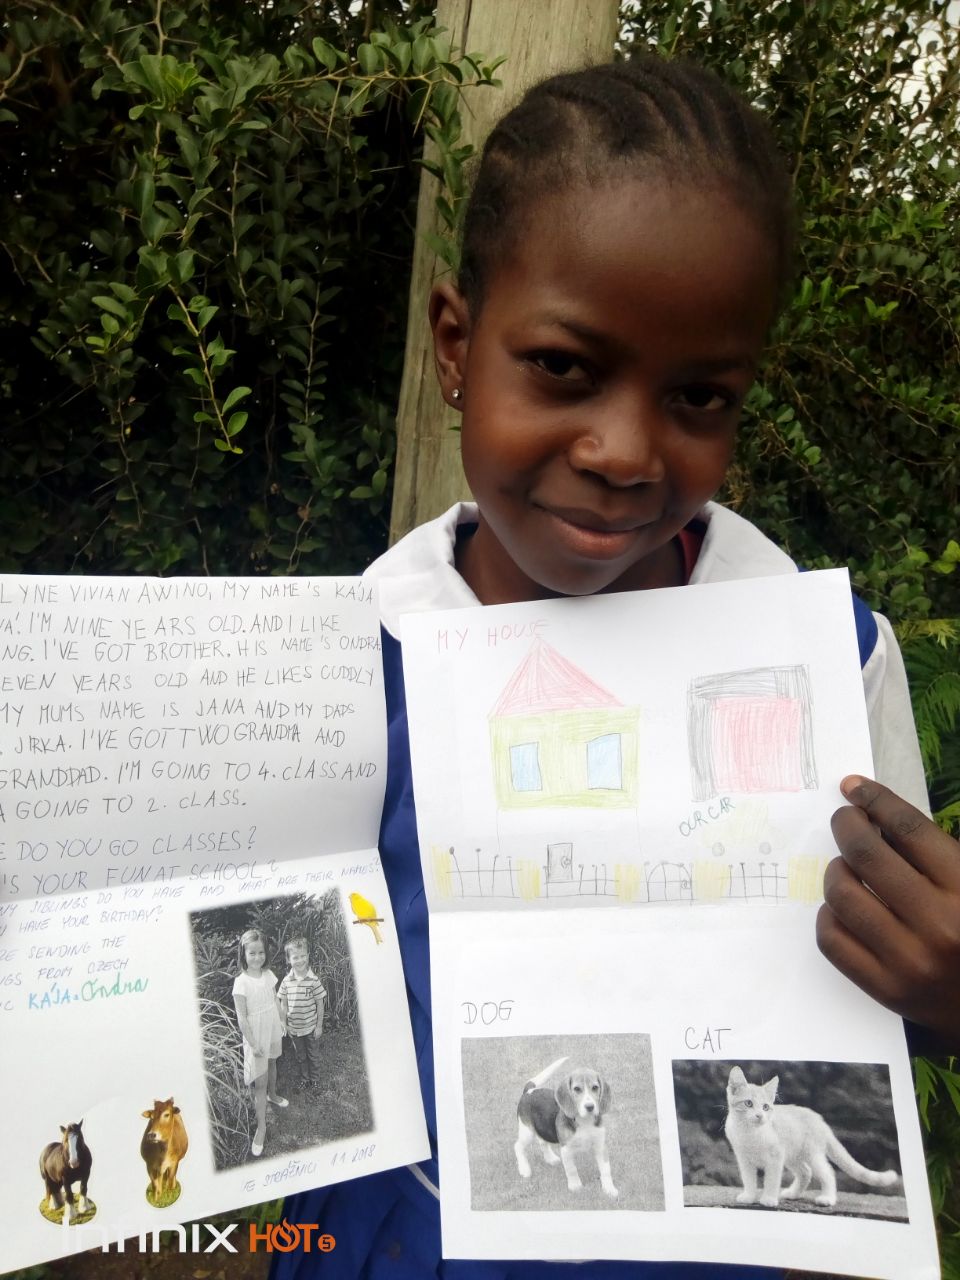 LYNE VIVIAN AWINO, MY NAME'S KÁJA
VÁ. I'M NINE YEARS OLD. AND I LIKE
NG. I'VE GOT BROTHER. HIS NAME'S ONDRA.
EVEN YEARS OLD AND HE LIKES CUDDLY
MY MUMS NAME IS JANA AND MY DADS
JIRKA. I'VE GOT TWO GRANDMA AND
GRANDDAD. I'M GOING TO 4. CLASS AND
A GOING TO 2. CLASS.
E DO YOU GO CLASSES?
'S YOUR FUN AT SCHOOL?
NY SIBLINGS DO YOU HAVE AND WHAT ARE THEIR NAMES?
U HAVE YOUR BIRTHDAY?
RE SENDING THE
NGS FROM CZECH
IC KÁJA a Ondra
STRÁŽNICI 1.1.2018
MY HOUSE
OUR CAR
DOG
CAT
Infinix HOT 5